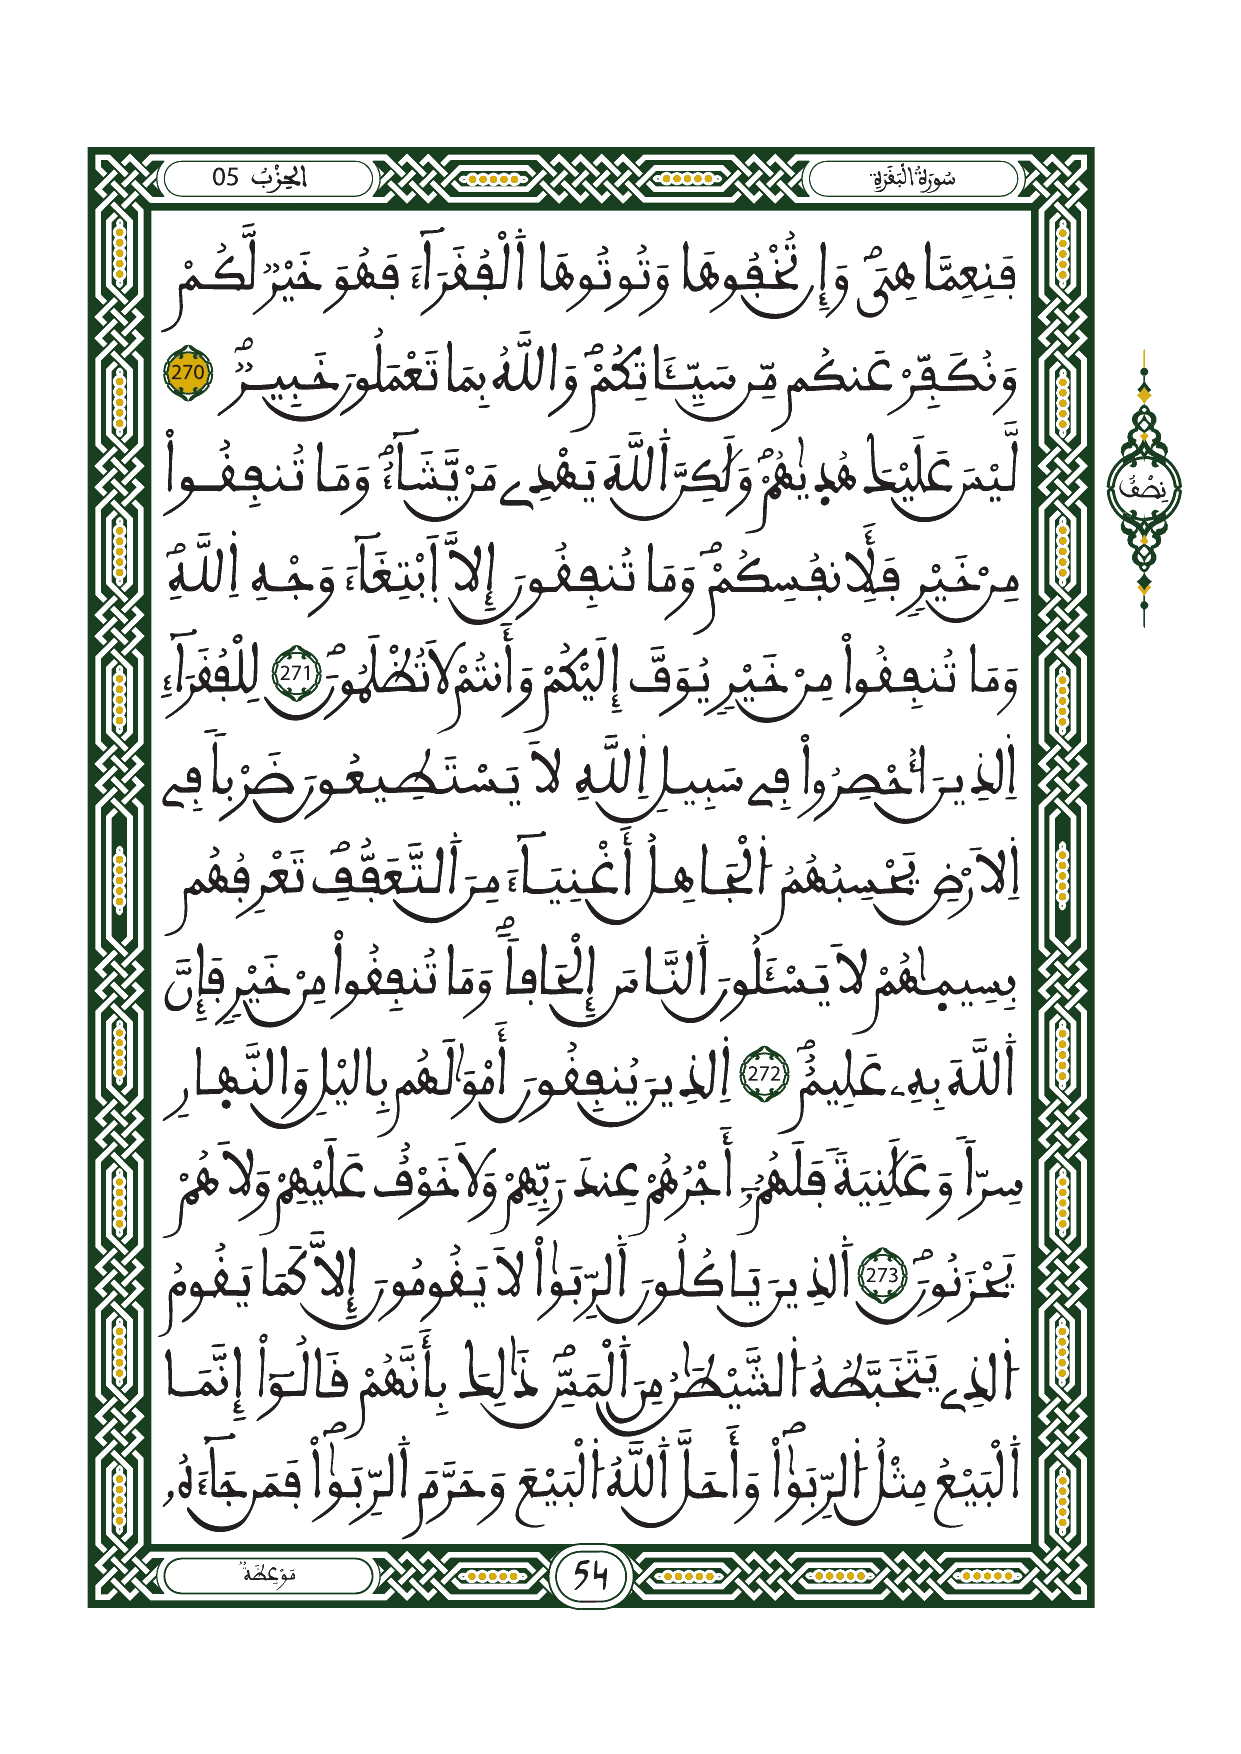 سُورَةُ الْبَقَرَةِ
الحِزْبُ 05
فَنِعِمَّا هِيَۖ وَإِن تُخْفُوهَا وَتُوتُوهَا اَ۬لْفُقَرَآءَ فَهُوَ خَيْرٞ لَّكُمْ
وَنُكَفِّرْ عَنكُم مِّن سَيِّـَٔاتِكُمْۖ وَاللَّهُ بِمَا تَعْمَلُونَ خَبِيرٞۖ 270
لَّيْسَ عَلَيْكَ هُد۪يٰهُمْۖ وَلَٰكِنَّ اَ۬للَّهَ يَهْدِے مَنْ يَّشَآءُۖ وَمَا تُنفِقُواْ
مِنْ خَيْرٖ فَلِأَنفُسِكُمْۖ وَمَا تُنفِقُونَ إِلاَّ اَ۪بْتِغَآءَ وَجْهِ اِ۬للَّهِۖ
وَمَا تُنفِقُواْ مِنْ خَيْرٖ يُوَفَّ إِلَيْكُمْ وَأَنتُمْ لاَ تُظْلَمُونَۖ 271 لِلْفُقَرَآءِ
اِ۬لذِينَ أُحْصِرُواْ فِے سَبِيلِ اِ۬للَّهِ لاَ يَسْتَطِيعُونَ ضَرْباٗ فِے
اِ۬لاَرْضِ يَحْسِبُهُمُ اُ۬لْجَاهِلُ أَغْنِيَآءَ مِنَ اَ۬لتَّعَفُّفِۖ تَعْرِفُهُم
بِسِيم۪اٰهُمْ لاَ يَسْـَٔلُونَ اَ۬لنَّاسَ إِلْحَافاٗۖ وَمَا تُنفِقُواْ مِنْ خَيْرٖ فَإِنَّ
اَ۬للَّهَ بِهِۦ عَلِيمٌۖ 272 اِ۬لذِينَ يُنفِقُونَ أَمْوَٰلَهُم بِاليْلِ وَالنَّه۪ارِ
سِرّاٗ وَعَلَٰنِيَةٗ فَلَهُمُۥٓ أَجْرُهُمْ عِندَ رَبِّهِمْ وَلاَ خَوْفٌ عَلَيْهِمْ وَلاَ هُمْ
يَحْزَنُونَۖ 273 اَ۬لذِينَ يَاكُلُونَ اَ۬لرِّبَوٰاْ لاَ يَقُومُونَ إِلاَّ كَمَا يَقُومُ
اُ۬لذِے يَتَخَبَّطُهُ اُ۬لشَّيْطَٰنُ مِنَ اَ۬لْمَسِّۖ ذَٰلِكَ بِأَنَّهُمْ قَالُوٓاْ إِنَّمَا
اَ۬لْبَيْعُ مِثْلُ اُ۬لرِّبَوٰاْۖ وَأَحَلَّ اَ۬للَّهُ اُ۬لْبَيْعَ وَحَرَّمَ اَ۬لرِّبَوٰاْۖ فَمَن جَآءَهُۥ
نِصْفُ
مَوْعِظَةٌ
54